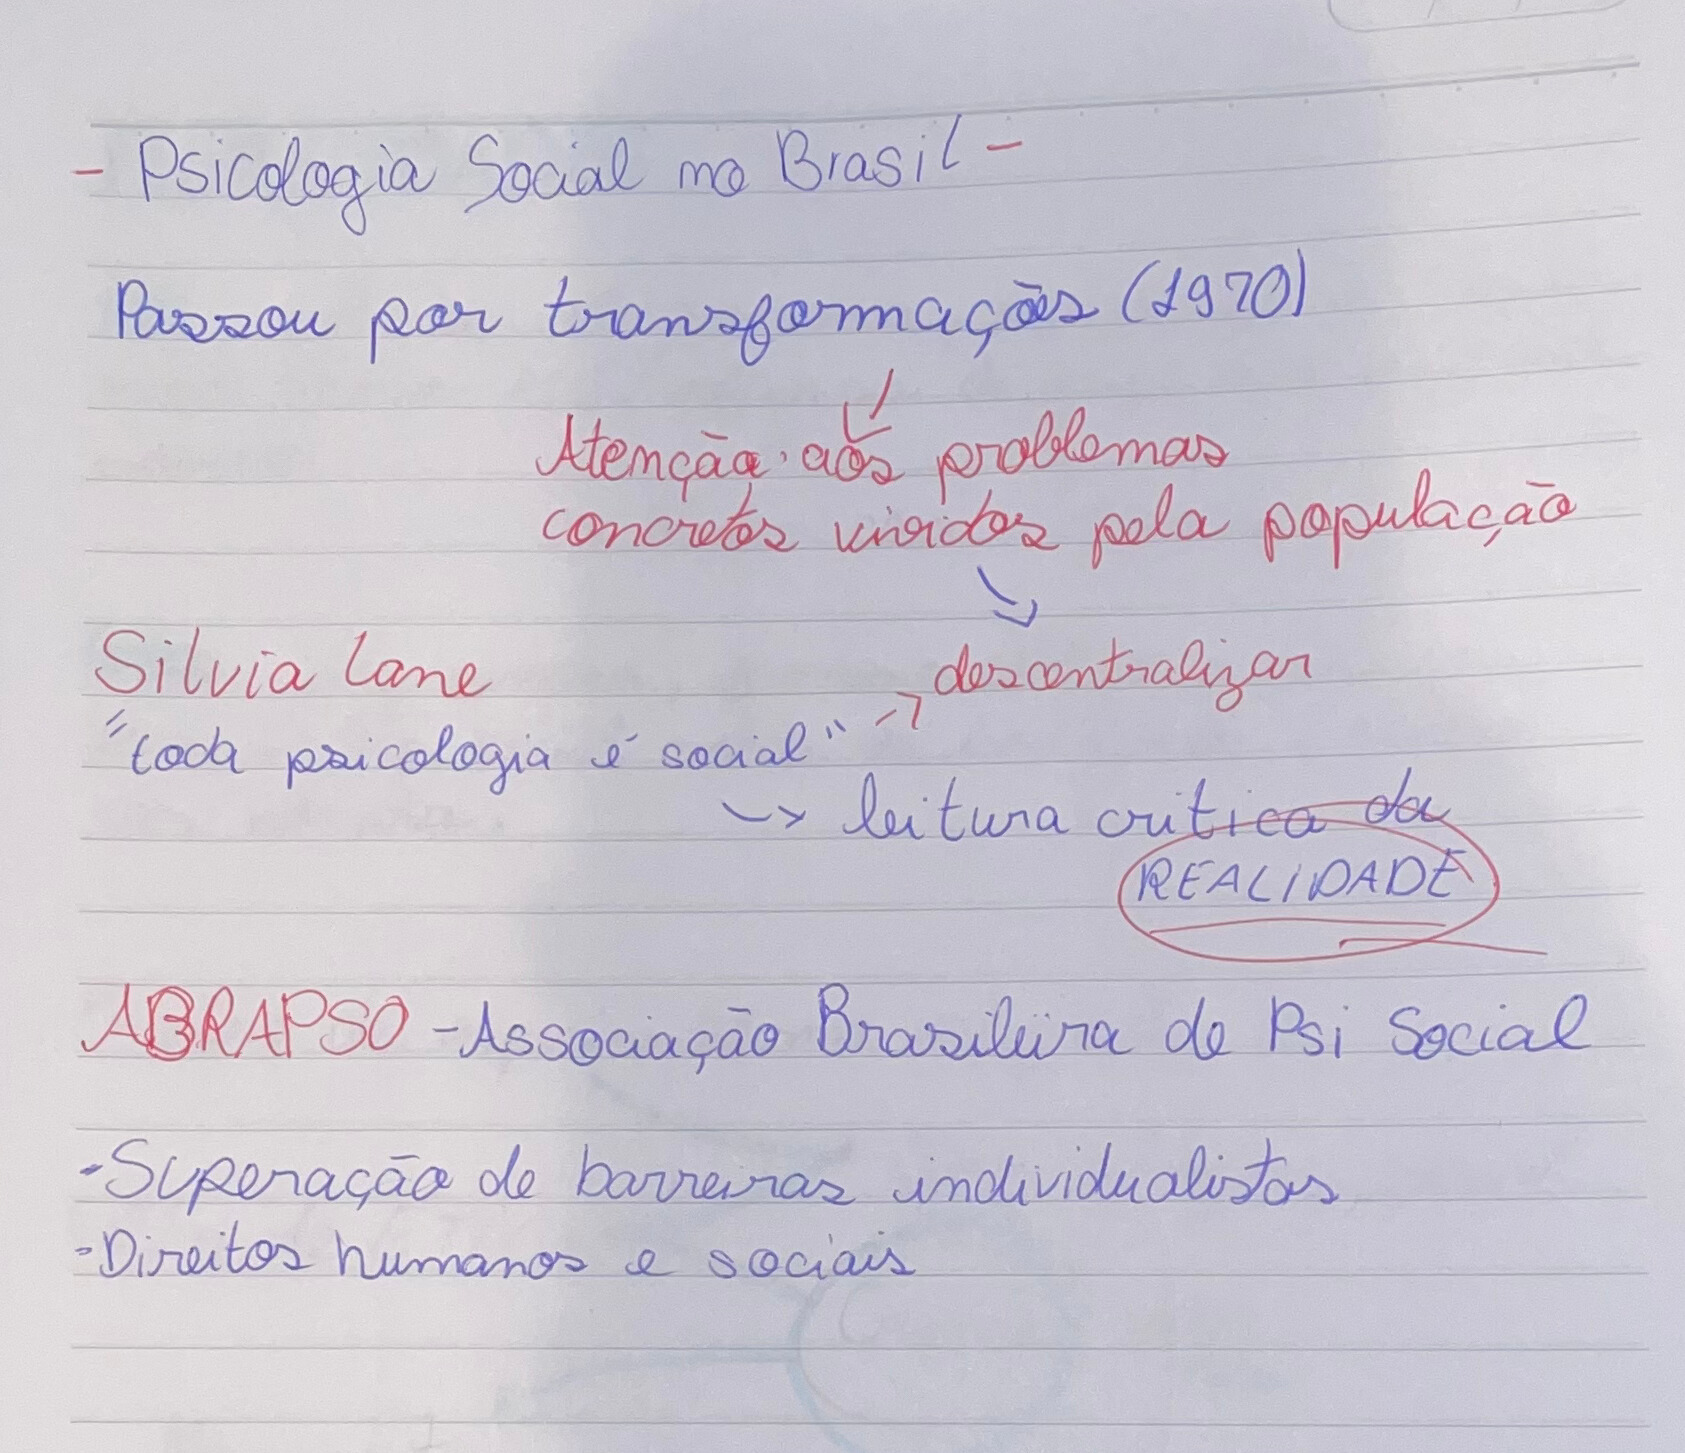 - Psicologia Social no Brasil -
Passou por transformações (1970)
Atenção aos problemas
concretos vividos pela população
descentralizar
Silvia Lane
"toda psicologia é social"
leitura crítica da
REALIDADE
ABRAPSO - Associação Brasileira de Psi Social
- Superação de barreiras individualistas
- Direitos humanos e sociais